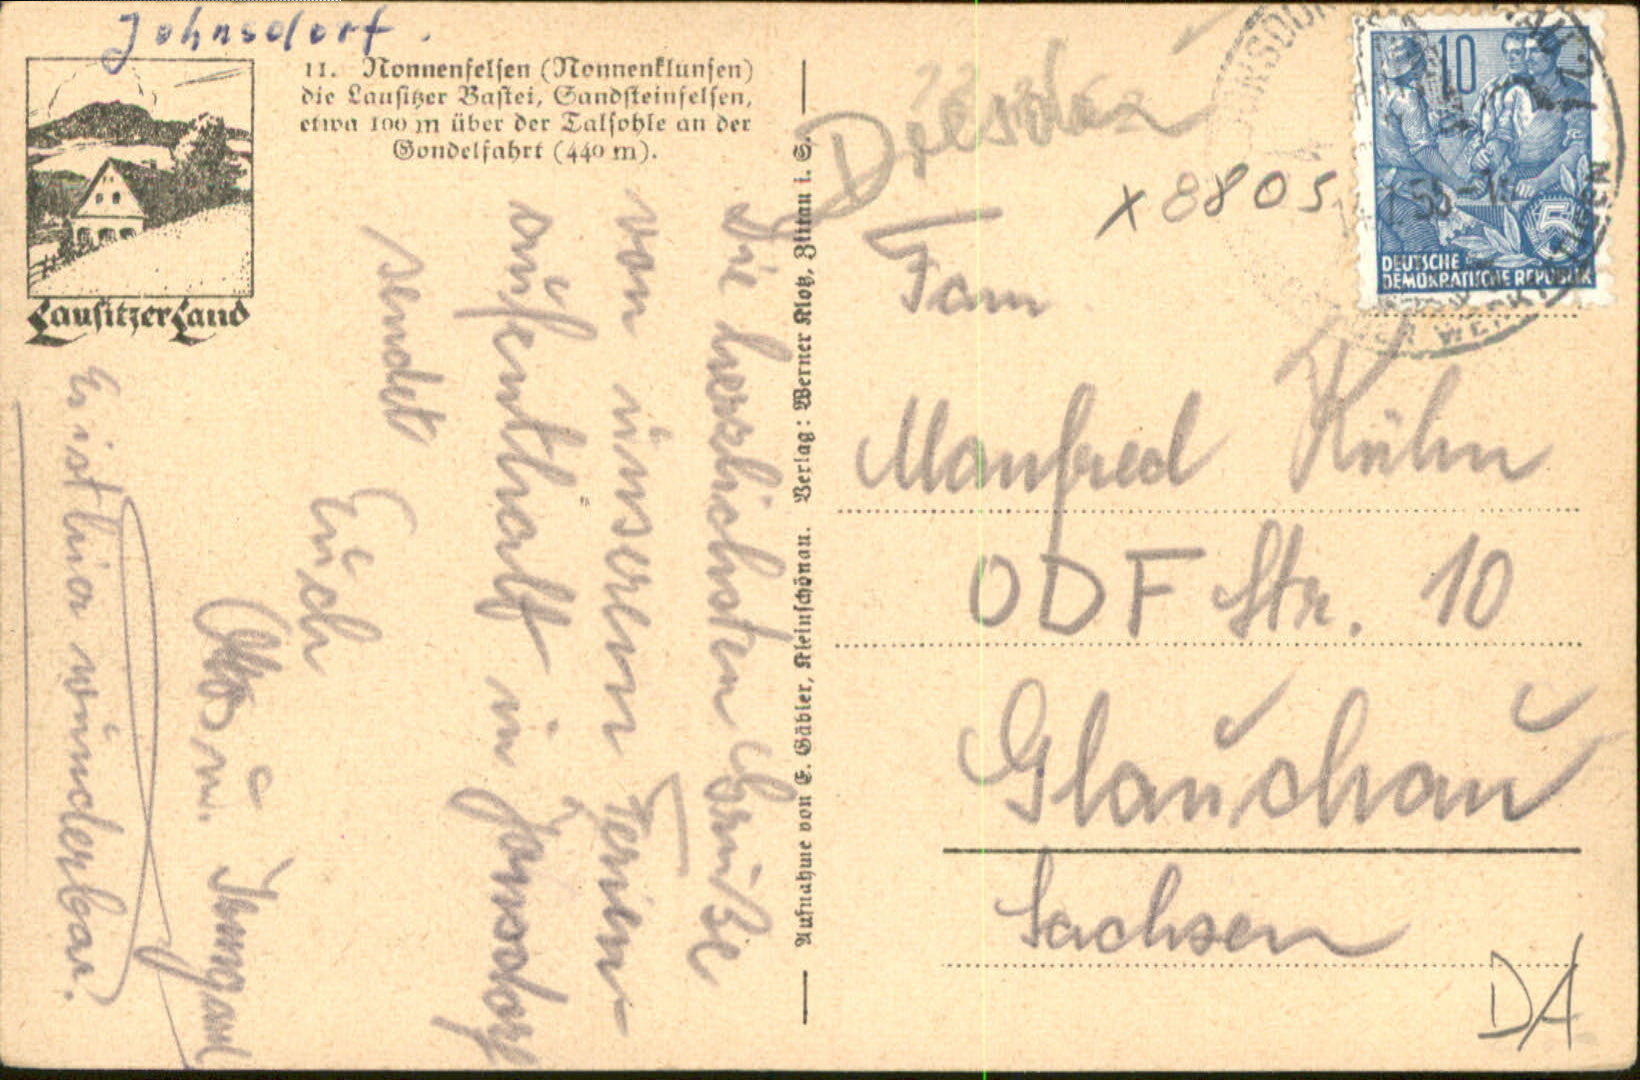 Johnsdorf.
11. Nonnenfelsen (Nonnenklunsen)
die Lausitzer Bastei, Sandsteinfelsen,
etwa 100 m über der Talsohle an der
Gondelfahrt (440 m).
Lausitzer Land
Die herzlichsten Grüße
von unserem Ferien-
aufenthalt in Jonsdorf
sendet
Euch
Otto u. Irmgard
Es ist hier wunderbar.
Aufnahme von E. Gäbler, Kleinschönau. Verlag: Werner Klotz, Zittau i. S.
Dresden
x 8805
10
5
DEUTSCHE
DEMOKRATISCHE REPUBLIK
Fam
Manfred Kühn
ODF Str. 10
Glauchau
Sachsen
DA